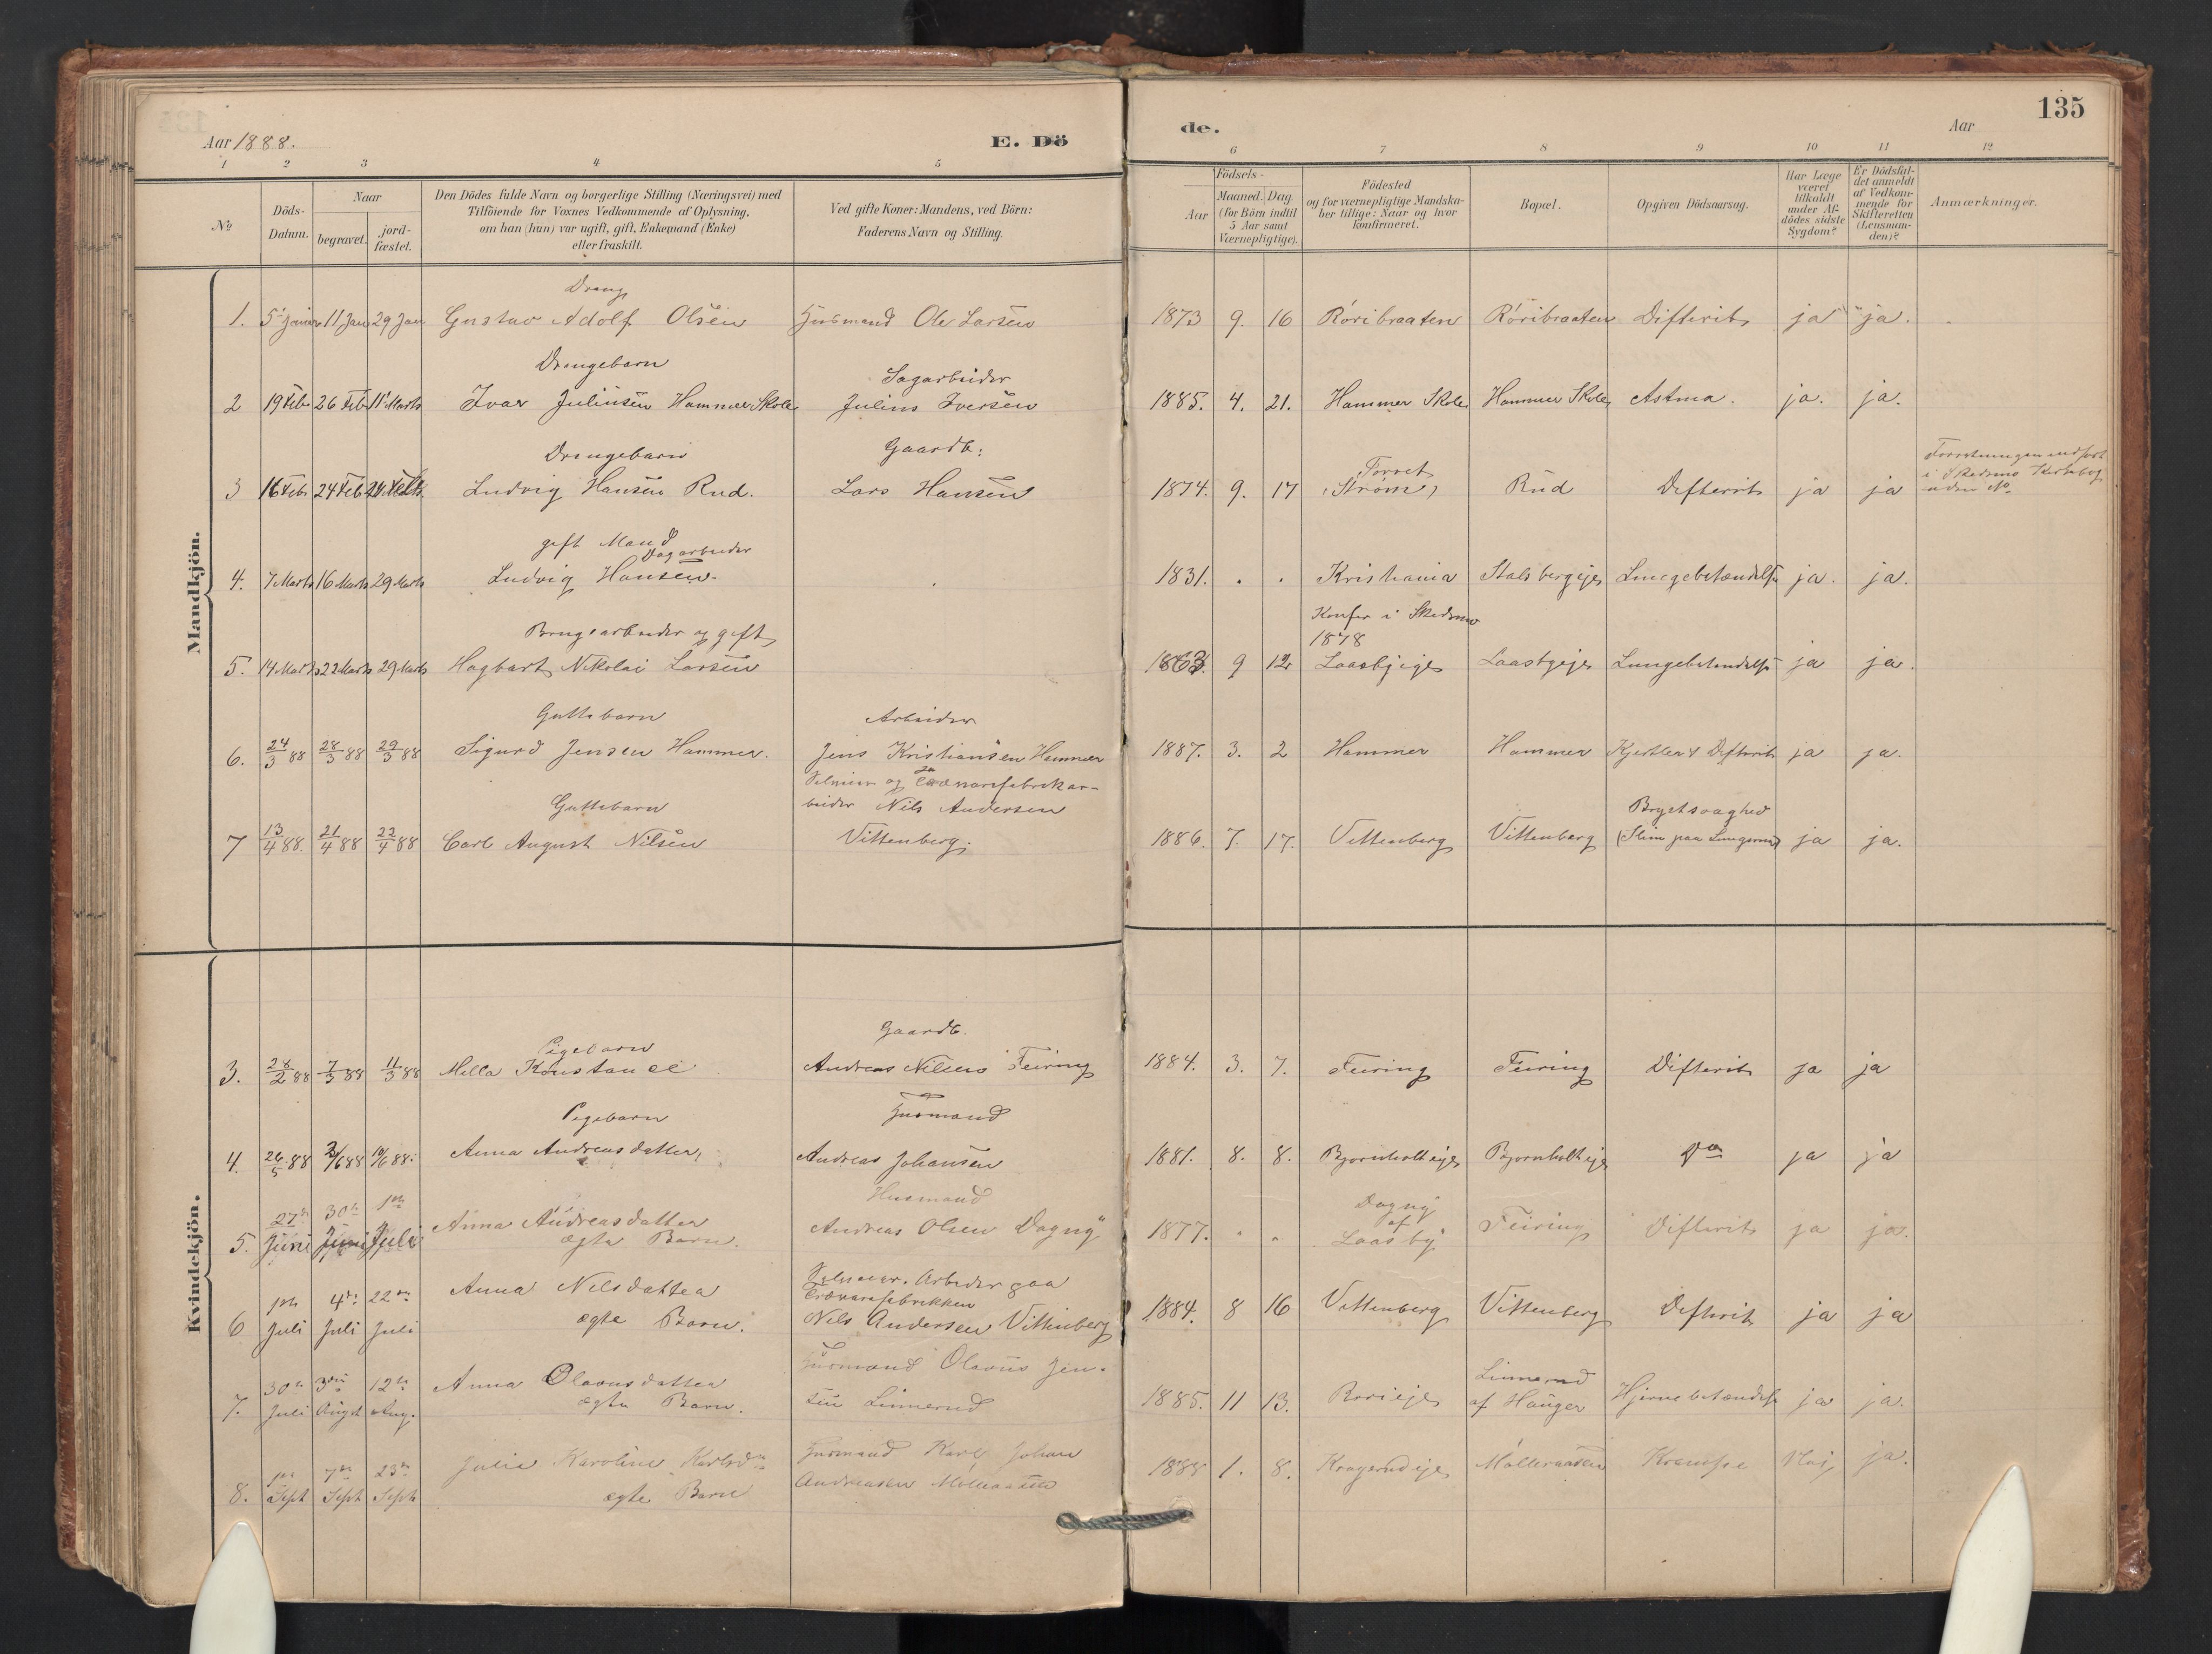 Aar 1888.
E. Dö
1 2 3 4 5
No
Döds-Datum.
Naar
begravet.
jord-fæstet.
Den Dödes fulde Navn og borgerlige Stilling (Næringsvei) med
Tilföiende for Voxnes Vedkommende af Oplysning,
om han (hun) var ugift, gift, Enkemand (Enke)
eller fraskilt.
Ved gifte Koner: Mandens, ved Börn:
Faderens Navn og Stilling.
de.
Aar
135
6 7 8 9 10 11 12
Aar
Födsels-
Maaned. Dag.
(for Börn indtil
5 Aar samt
Værnepligtige).
Födested
og for værnepligtige Mandska-
ber tillige: Naar og hvor
konfirmeret.
Bopæl.
Opgiven Dödsaarsag.
Har Læge
været
tilkaldt
under Af-
dödes sidste
Sygdom?
Er Dödsfal-
det anmeldt
af Vedkom-
mende for
Skifteretten
(Lensman-
den)?
Anmærkninger.
Mandkjön.
Dreng
1. 5 Januar 11 Jan 29 Jan Gustav Adolf Olsen Husmand Ole Larsen 1873 9. 16 Röribraaten Röribraaten Difterit ja ja.
Drengebarn
Sagarbeider
2 19 Feb 26 Feb 11 Marts Ivar Juliusen Hammer Skole Julius Iversen 1885. 4. 21. Hammer Skole Hammer Skole Astma. ja. ja.
Drengebarn
Gaardb:
3 16 Feb 24 Feb Ludvig Hansen Rud. Lars Hansen 1874. 9. 17 Torvet (Ström) Rud Difterit ja ja
i Skedsmo Kirkebog
uden No
gift Mand
Dagarbeider
4. 7 Marts 16 Marts 29 Marts Ludvig Hansen. 1831. Kristiania Stalsbergeje Lungebetændelse ja. ja.
Brugsarbeider og gift
Konfir i Skedsmo
1878
5. 14 Marts 22 Marts 29 Marts Hagbart Nikolai Larsen 1863. 9 12 Laasbyeje Laasbyeje Lungebetændelse ja ja.
Guttebarn
Arbeider
6. 24/3 88 28/3 88 29/3 88 Sigurd Jensen Hammer. Jens Kristiansen Hammer 1887. 3. 2 Hammer Hammer Kjertler & Difterit ja ja.
Guttebarn
Selveier og Trævarefabrikar-
beider Nils Andersen
Vittenberg.
7 13/4 88. 21/4 88 22/4 88 Carl August Nilsen 1886. 7. 17. Vittenberg Vittenberg Brystsvaghed (Slim paa Lungerne) ja ja.
Kvindekjön.
Pigebarn
Gaardb.
3. 28/2 88 7/3 88 11/3 88 Mella Konstance Andreas Nilsens Feiring 1884. 3. 7. Feiring Feiring Difterit ja ja
Pigebarn
Husmand
4. 26/5 88 2/6 88 10/6 88. Anna Andreasdatter, Andreas Johansen 1881. 8. 8. Bjørnholteje Bjørnholteje Do ja ja
Husmand
5. 27de Juni 30te Juni 1ste Juli Anna Andreasdatter ægte Barn. Andreas Olsen Dagny 1877. Dagny af Laasby Feiring Difterit ja ja.
6 1ste Juli 4de Juli 22de Juli Anna Nilsdatter ægte Barn. Selveier. Arbeider paa Trævarefabrikken Nils Andersen Vittenberg 1884. 8 16 Vittenberg Vittenberg Difterit ja ja
7. 30te Juli 3die Augst 12te Aug. Anna Olavusdatter ægte Barn. Husmand Olavus Jen-
sen Linnerud 1885. 11 13. Rorieje Linnerud af Hauger Hjernebetændelse ja ja.
8. 1ste Sept 7de Sept 23de Sept Julie Karoline Karlsd. ægte Barn Husmand Karl Johan
Andreasen Mölleraasen 1888 1. 8. Kragerudeje Mölleraasen Krampe Nej ja.